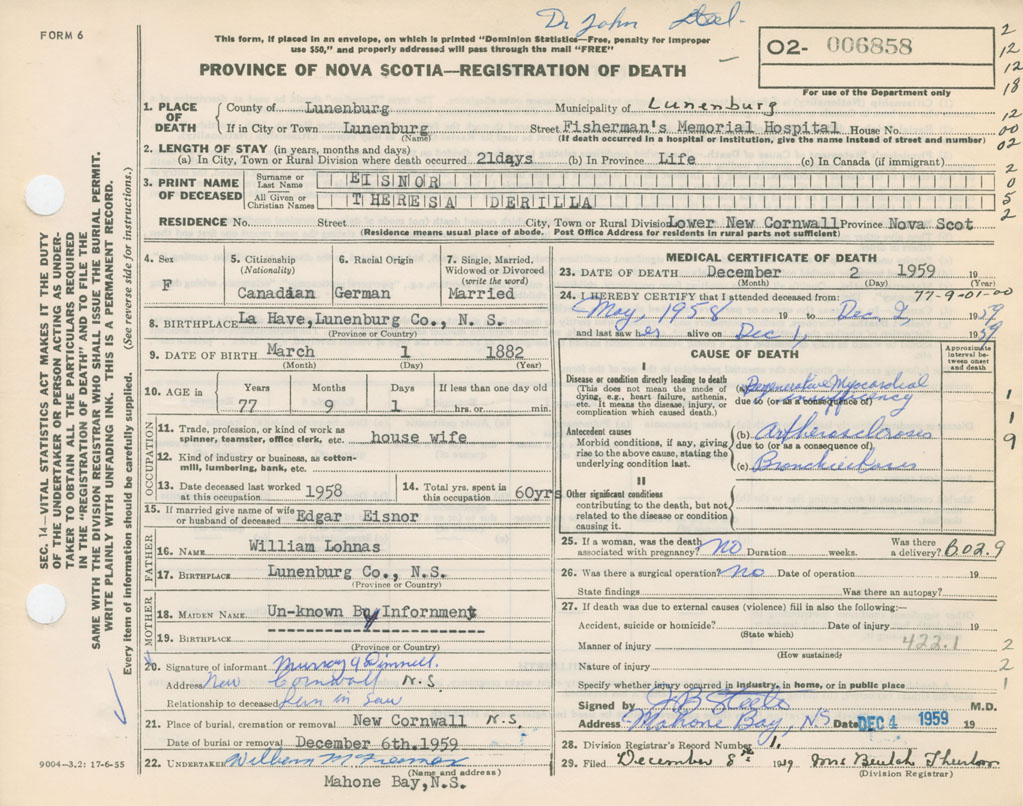 Dr John Steel.
FORM 6
This form, if placed in an envelope, on which is printed "Dominion Statistics—Free, penalty for improper
use $50," and properly addressed will pass through the mail "FREE"
02- 006858
For use of the Department only
PROVINCE OF NOVA SCOTIA—REGISTRATION OF DEATH
2
12
12
18
12
00
02
2
0
5
2
SEC. 14—VITAL STATISTICS ACT MAKES IT THE DUTY
OF THE UNDERTAKER OR PERSON ACTING AS UNDER-
TAKER TO OBTAIN ALL THE PARTICULARS REQUIRED
IN THE "REGISTRATION OF DEATH" AND TO FILE THE
SAME WITH THE DIVISION REGISTRAR WHO SHALL ISSUE THE BURIAL PERMIT.
WRITE PLAINLY WITH UNFADING INK. THIS IS A PERMANENT RECORD.
Every item of information should be carefully supplied. (See reverse side for instructions.)
1. PLACE OF DEATH
County of Lunenburg Municipality of Lunenburg
If in City or Town Lunenburg Street Fisherman's Memorial Hospital House No.
(Name) (If death occurred in a hospital or institution, give the name instead of street and number)
2. LENGTH OF STAY (in years, months and days)
(a) In City, Town or Rural Division where death occurred 21days (b) In Province Life (c) In Canada (if immigrant)
3. PRINT NAME OF DECEASED
Surname or Last Name EISNOR
All Given or Christian Names THERESA DERILLA
RESIDENCE No. Street City, Town or Rural Division Lower New Cornwall Province Nova Scot
(Residence means usual place of abode. Post Office Address for residents in rural parts not sufficient)
4. Sex
F
5. Citizenship (Nationality)
Canadian
6. Racial Origin
German
7. Single, Married, Widowed or Divorced (write the word)
Married
8. BIRTHPLACE La Have, Lunenburg Co., N. S.
(Province or Country)
9. DATE OF BIRTH March 1 1882
(Month) (Day) (Year)
10. AGE in Years Months Days If less than one day old
77 9 1 hrs. or min.
OCCUPATION
11. Trade, profession, or kind of work as spinner, teamster, office clerk, etc. house wife
12. Kind of industry or business, as cotton-mill, lumbering, bank, etc.
13. Date deceased last worked at this occupation 1958
14. Total yrs. spent in this occupation 60yrs
15. If married give name of wife or husband of deceased Edgar Eisnor
FATHER
16. NAME William Lohnas
17. BIRTHPLACE Lunenburg Co., N.S.
(Province or Country)
MOTHER
18. MAIDEN NAME Un-known By Infornment
19. BIRTHPLACE
(Province or Country)
20. Signature of informant Murray
Address New Cornwall N.S.
Relationship to deceased Son in Law
21. Place of burial, cremation or removal New Cornwall N.S.
Date of burial or removal December 6th.1959
22. UNDERTAKER
(Name and address)
Mahone Bay,N.S.
9004—3.2: 17-6-55
MEDICAL CERTIFICATE OF DEATH
23. DATE OF DEATH December 2 1959 19
(Month) (Day) (Year)
77-9-01-00
24. I HEREBY CERTIFY that I attended deceased from:
May, 1958 19 to Dec. 2, 1959
and last saw her alive on Dec 1, 1959
CAUSE OF DEATH
Approximate interval between onset and death
I
Disease or condition directly leading to death
(This does not mean the mode of dying, e.g., heart failure, asthenia, etc. It means the disease, injury, or complication which caused death.)
(a) Degenerative Myocardial insufficiency
due to (or as a consequence of)
Antecedent causes
Morbid conditions, if any, giving rise to the above cause, stating the underlying condition last.
(b) Artherosclerosis
due to (or as a consequence of)
(c) Bronchiectosis
1
1
9
II
Other significant conditions
contributing to the death, but not related to the disease or condition causing it.
25. If a woman, was the death associated with pregnancy? No Duration weeks. Was there a delivery? B02.9
26. Was there a surgical operation? No Date of operation 19
State findings Was there an autopsy?
27. If death was due to external causes (violence) fill in also the following:—
Accident, suicide or homicide? Date of injury 19
(State which)
Manner of injury 422.1 2
(How sustained)
Nature of injury 2
Specify whether injury occurred in industry, in home, or in public place 1
Signed by J.B. Steele M.D.
Address Mahone Bay, NS Date DEC 4 1959 19
28. Division Registrar's Record Number 1.
29. Filed December 8th 1959 Mrs Beulah
(Division Registrar)